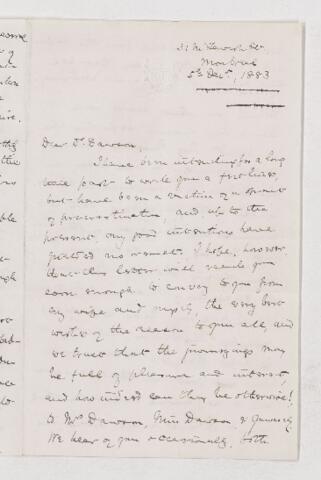 McTavish St.
Montreal
5th Decr, 1883
Dear Dr. Dawson,
I have been intending for a long
time past to write you a few lines,
but have been a victim of a
of procrastination, and up to the
present, my good intentions have
yielded no result. I hope, however
that this letter will reach you
soon enough, to convey to you from
my wife and myself, the very best
wishes of the season to you all, and
we trust that the journeyings may
be full of pleasure and interest,
and how indeed can they be otherwise!
to Mrs Dawson, Miss Dawson &
We hear of you occasionally, both